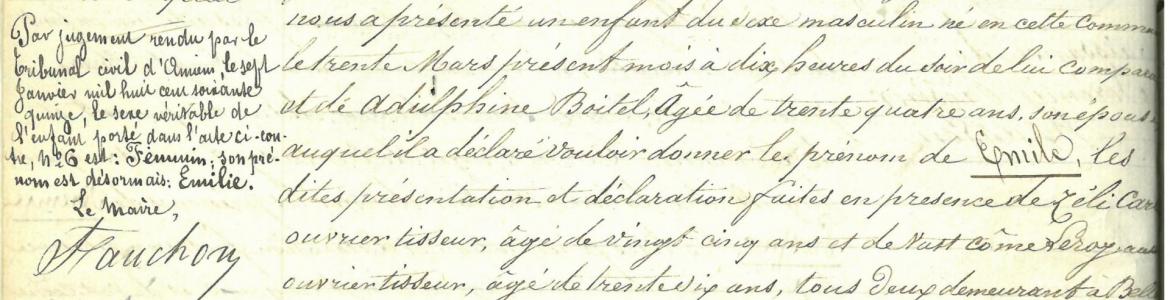 Par jugement rendu par le
tribunal civil d'Amiens, le sept
Janvier mil huit cent soixante
quinze, le sexe véritable de
l'enfant porté dans l'acte ci-con-
tre, N° 6 est: Féminin; son pré-
nom est désormais: Emilie.
Le Maire,
Fauchon
nous a présenté un enfant du sexe masculin né en cette comm
le trente Mars présent mois à dix heures du soir de lui compara
et de Adulphine Boitel, âgée de trente quatre ans, son épous
auquel il a déclaré vouloir donner le prénom de Emile, les
dites présentation et déclaration faites en présence de Zéli Car
ouvrier tisseur, âgé de vingt cinq ans et de Vast Côme Leroy
ouvrier tisseur, âgé de trente six ans, tous deux demeurant à